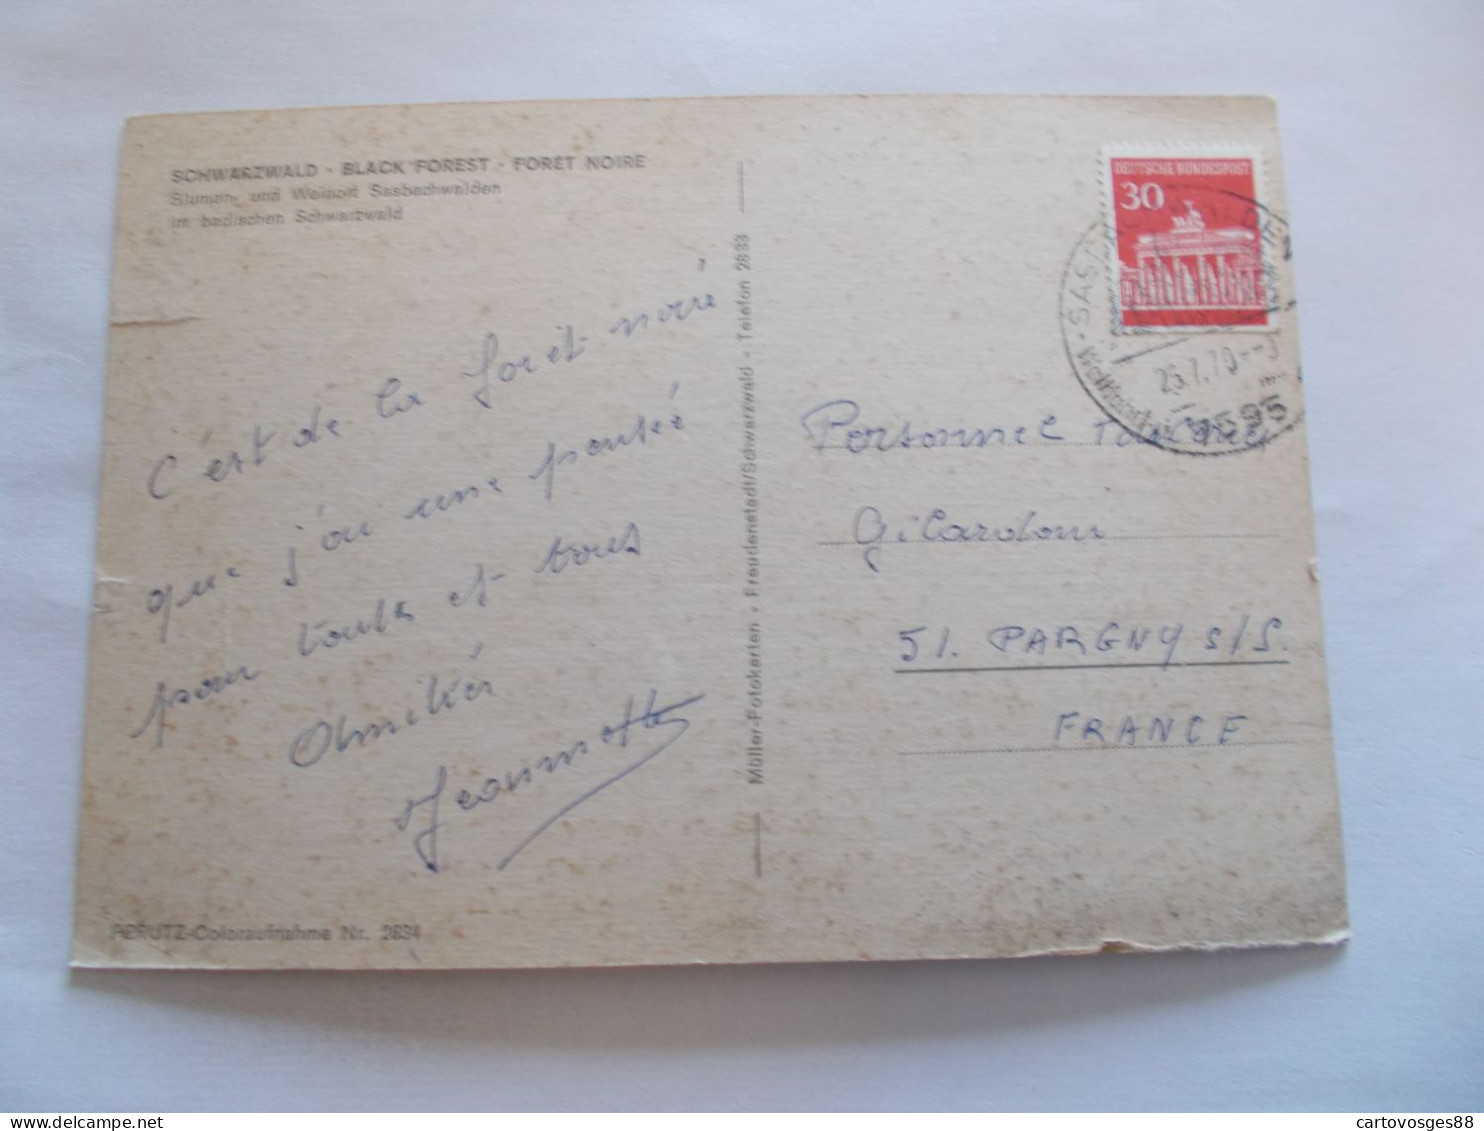 SCHWARZWALD · BLACK FOREST · FORÊT NOIRE
Blumen- und Weinort Sasbachwalden
im badischen Schwarzwald
C'est de la forêt noire
que j'ai une pensée
pour toutes et tous
Amitiés
Jeannette
PERUTZ-Coloraufnahme Nr. 2834
Müller-Fotokarten · Freudenstadt/Schwarzwald · Telefon 2833
DEUTSCHE BUNDESPOST
30
7595
Personnel
Gilardoni
51. PARGNY s/S.
FRANCE
cartovosges88